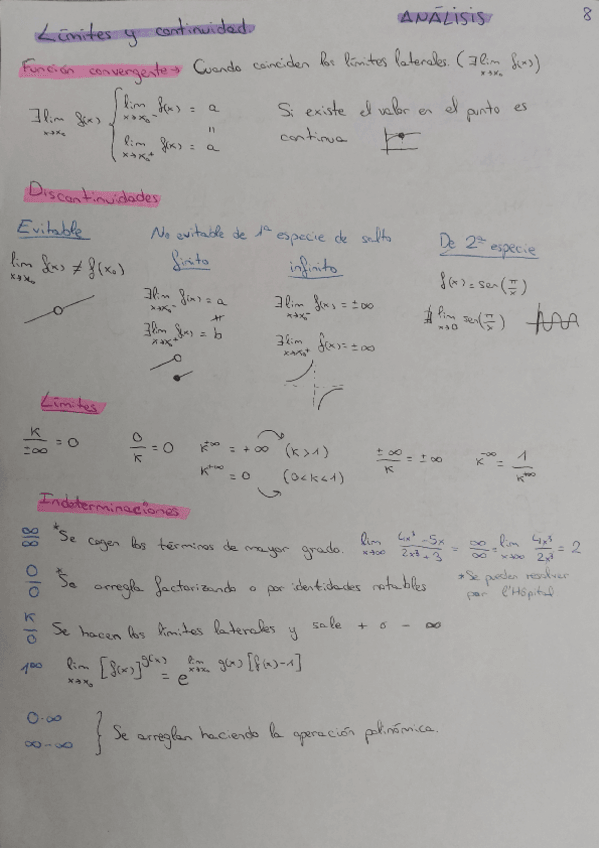 ANÁLISIS 8
Límites y continuidad.
Función convergente → Cuando coinciden los límites laterales. (∃ lim x→x₀ f(x))
∃ lim x→x₀ f(x) { lim x→x₀⁻ f(x) = a
"
lim x→x₀⁺ f(x) = a
Si existe el valor en el punto es
continua
Discontinuidades
Evitable
lim x→x₀ f(x) ≠ f(x₀)
No evitable de 1ª especie de salto
finito
∃ lim x→x₀⁻ f(x) = a
≠
∃ lim x→x₀⁺ f(x) = b
infinito
∃ lim x→x₀⁻ f(x) = ±∞
∃ lim x→x₀⁺ f(x) = ±∞
De 2ª especie
f(x) = sen(π/x)
∄ lim x→0 sen(π/x)
Límites
K/±∞ = 0
0/K = 0
K^+∞ = +∞ (K>1)
K^+∞ = 0 (0<K<1)
±∞/K = ±∞
K^-∞ = 1/K^+∞
Indeterminaciones
∞/∞ *Se cogen los términos de mayor grado. lim x→∞ (4x³-5x)/(2x³+3) = ∞/∞ = lim x→∞ 4x³/2x³ = 2
0/0 *Se arregla factorizando o por identidades notables
*Se pueden resolver
por l'Hôpital
K/0 Se hacen los límites laterales y sale + o - ∞
1^∞ lim x→x₀ [f(x)]^g(x) = e^lim x→x₀ g(x)[f(x)-1]
0·∞
∞-∞
} Se arreglan haciendo la operación polinómica.